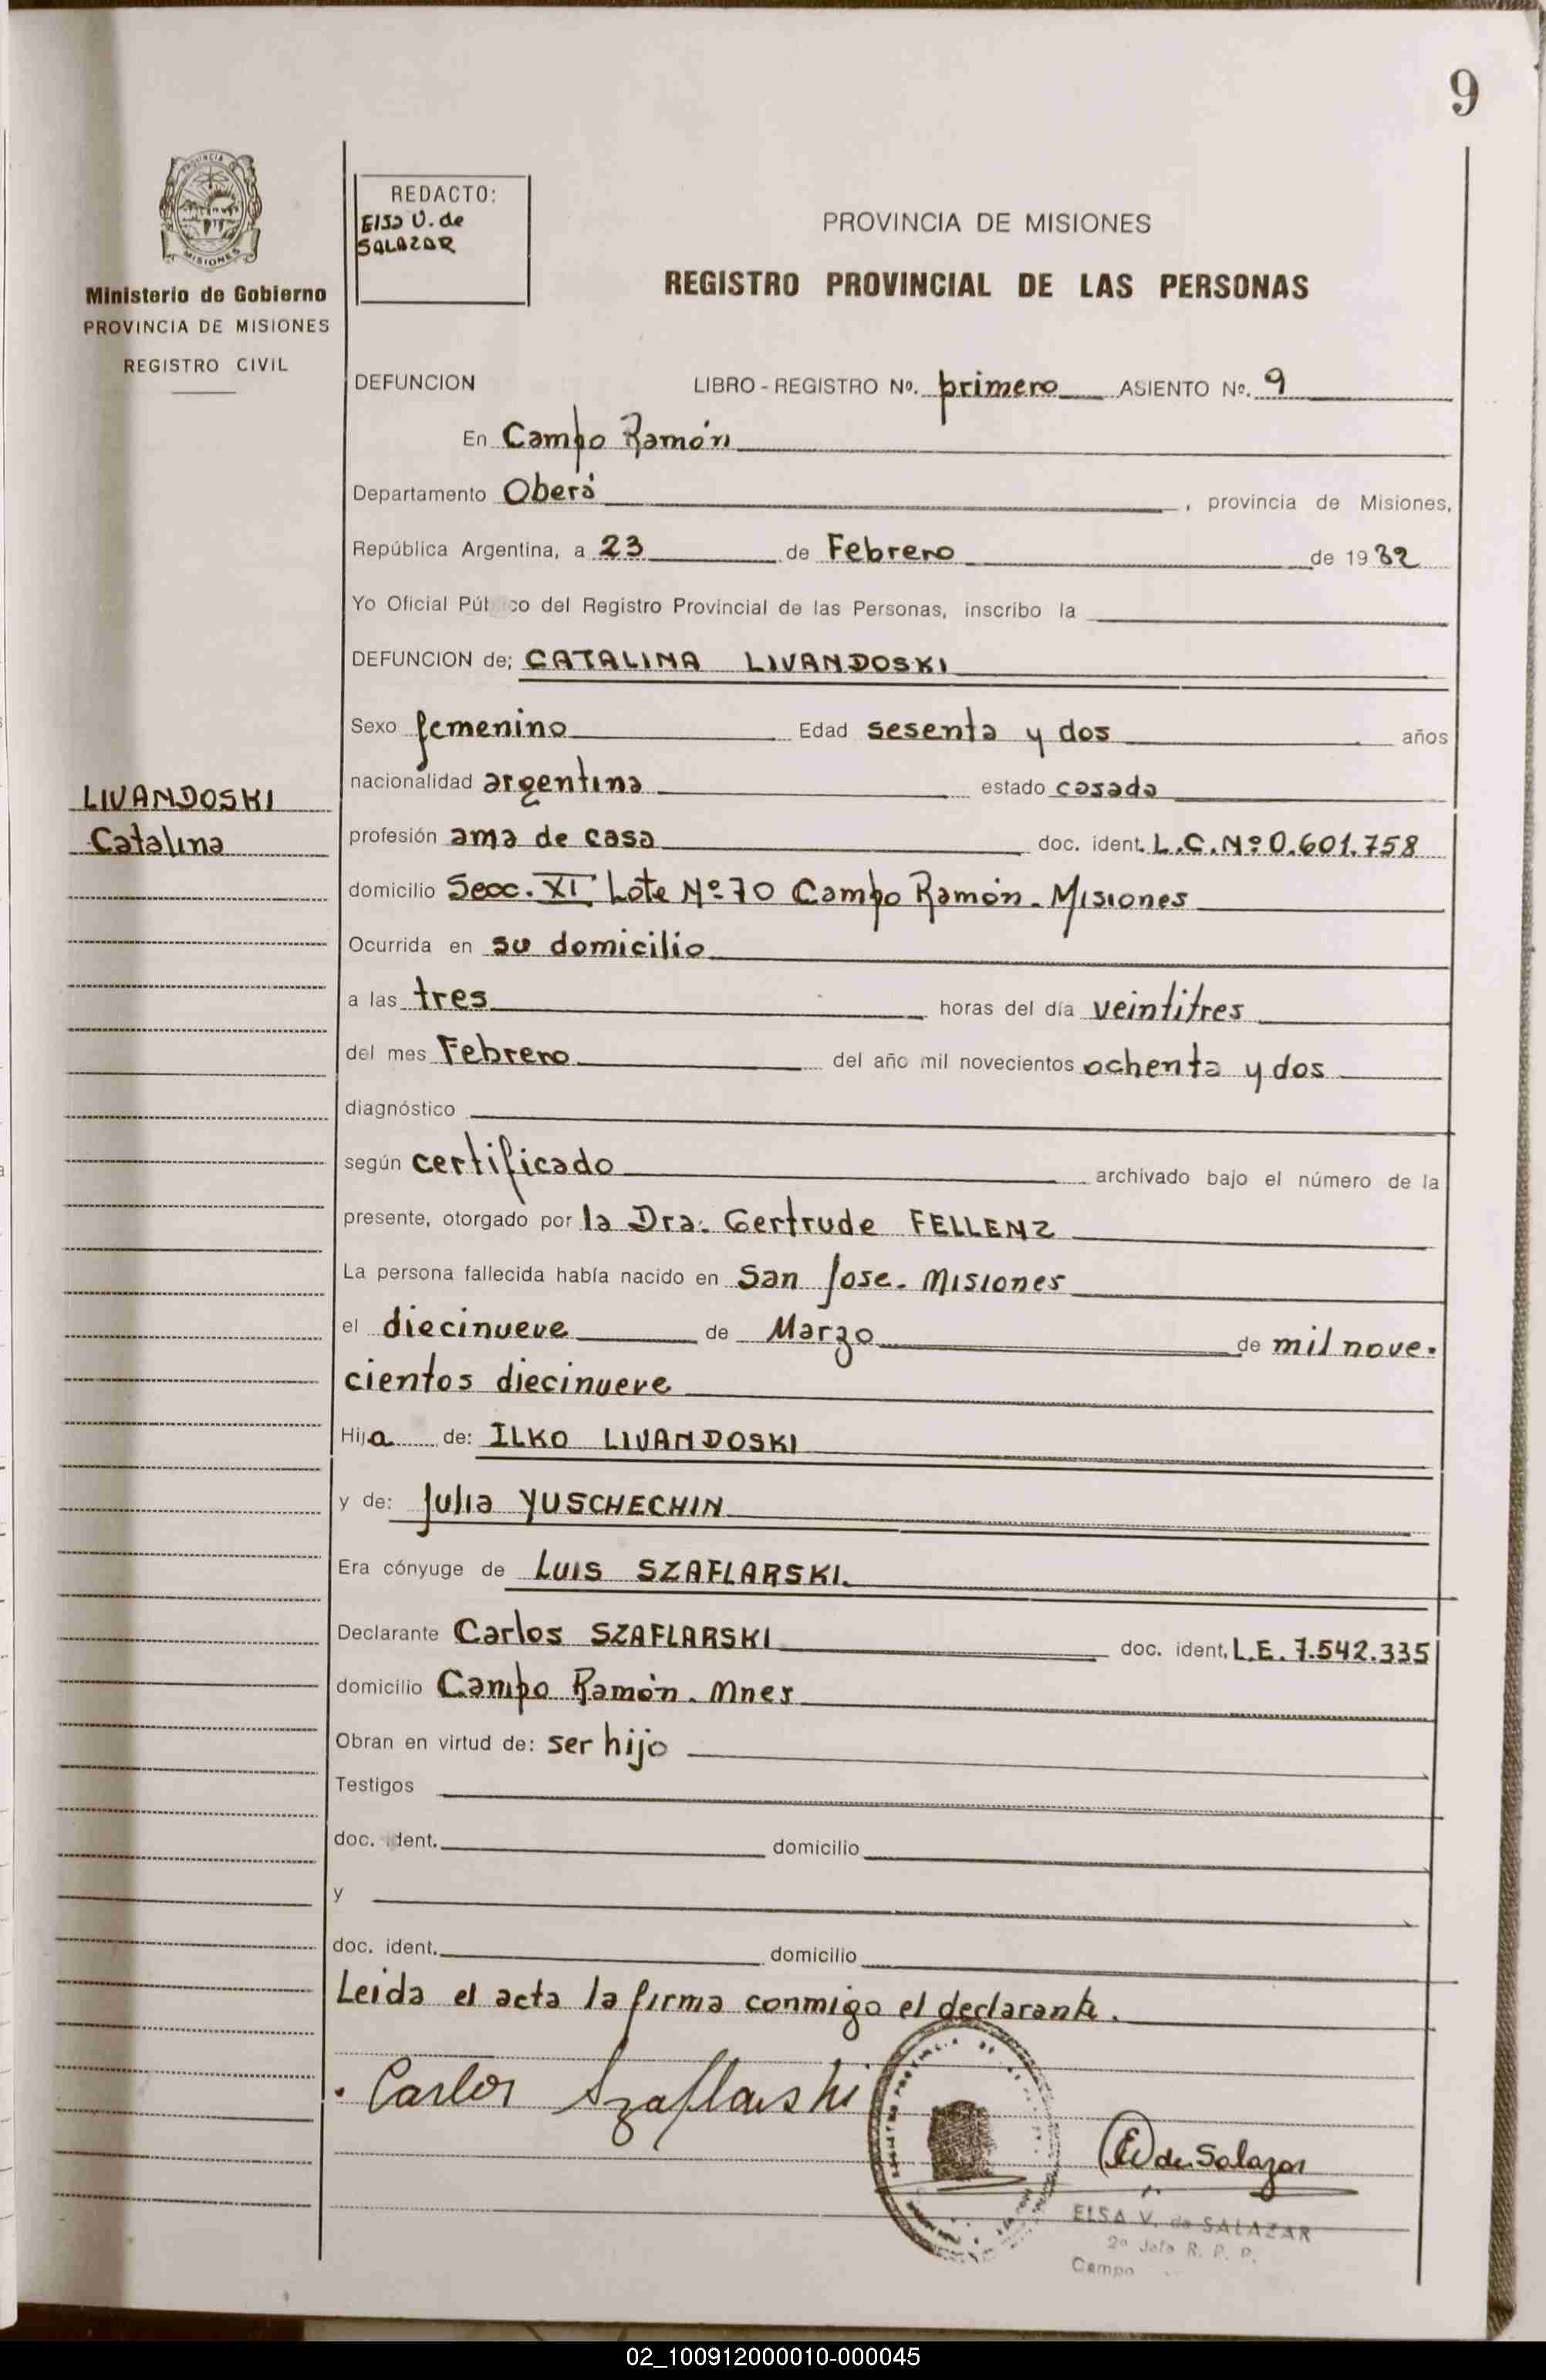 9
PROVINCIA DE
MISIONES
Ministerio de Gobierno
PROVINCIA DE MISIONES
REGISTRO CIVIL
REDACTO:
Elsa V. de
SALAZAR
PROVINCIA DE MISIONES
REGISTRO PROVINCIAL DE LAS PERSONAS
DEFUNCION LIBRO - REGISTRO Nº. primero ASIENTO Nº. 9
En Campo Ramón
Departamento Oberá, provincia de Misiones,
República Argentina, a 23 de Febrero de 1982
Yo Oficial Público del Registro Provincial de las Personas, inscribo la
DEFUNCION de; CATALINA LIVANDOSKI
Sexo femenino Edad sesenta y dos años
nacionalidad argentina estado casada
LIVANDOSKI
Catalina
profesión ama de casa doc. ident. L.C.Nº 0.601.758
domicilio Secc. XI Lote Nº 70 Campo Ramón. Misiones
Ocurrida en su domicilio
a las tres horas del día veintitres
del mes Febrero del año mil novecientos ochenta y dos
diagnóstico
según certificado archivado bajo el número de la
presente, otorgado por la Dra. Gertrude FELLENZ
La persona fallecida había nacido en San Jose. Misiones
el diecinueve de Marzo de mil nove-
cientos diecinueve
Hija de: ILKO LIVANDOSKI
y de: Julia YUSCHECHIN
Era cónyuge de Luis SZAFLARSKI.
Declarante Carlos SZAFLARSKI doc. ident. L.E. 7.542.335
domicilio Campo Ramón. Mnes
Obran en virtud de: ser hijo
Testigos
doc. ident. domicilio
y
doc. ident. domicilio
Leida el acta la firma conmigo el declarante.
Carlos Szaflarski
EV de Salazar
ELSA V. de SALAZAR
2ª Jefa R. P. P.
Campo
02_100912000010-000045